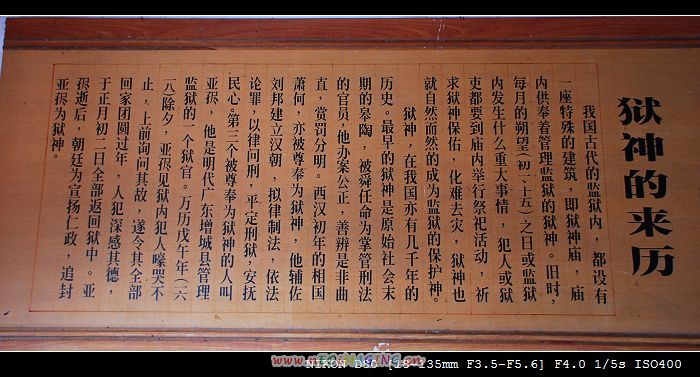 狱神的来历
我国古代的监狱内，都设有
一座特殊的建筑，即狱神庙，庙
内供奉着管理监狱的狱神。旧时，
每月的朔望（初一、十五）之日或监狱
内发生什么重大事情，犯人或狱
吏都要到庙内举行祭祀活动，祈
求狱神保佑，化难去灾，狱神也
就自然而然的成为监狱的保护神。
狱神，在我国亦有几千年的
历史。最早的狱神是原始社会末
期的皋陶，被舜任命为掌管刑法
的官员，他办案公正，善辨是非曲
直，赏罚分明。西汉初年的相国
萧何，亦被尊奉为狱神，他辅佐
刘邦建立汉朝，拟律制法，依法
论罪，以律问刑，平定刑狱，安抚
民心。第三个被尊奉为狱神的人叫
亚，他是明代广东增城县管理
监狱的一个狱官。万历戊午年（六
一八除夕，亚见狱内犯人嚎哭不
止，上前询问其故，遂令其全部
回家团圆过年，人犯深感其德，
于正月初二日全部返回狱中。亚
逝后，朝廷为宣扬仁政，追封
亚为狱神。
NIKON D80 [18-135mm F3.5-F5.6] F4.0 1/5s ISO400